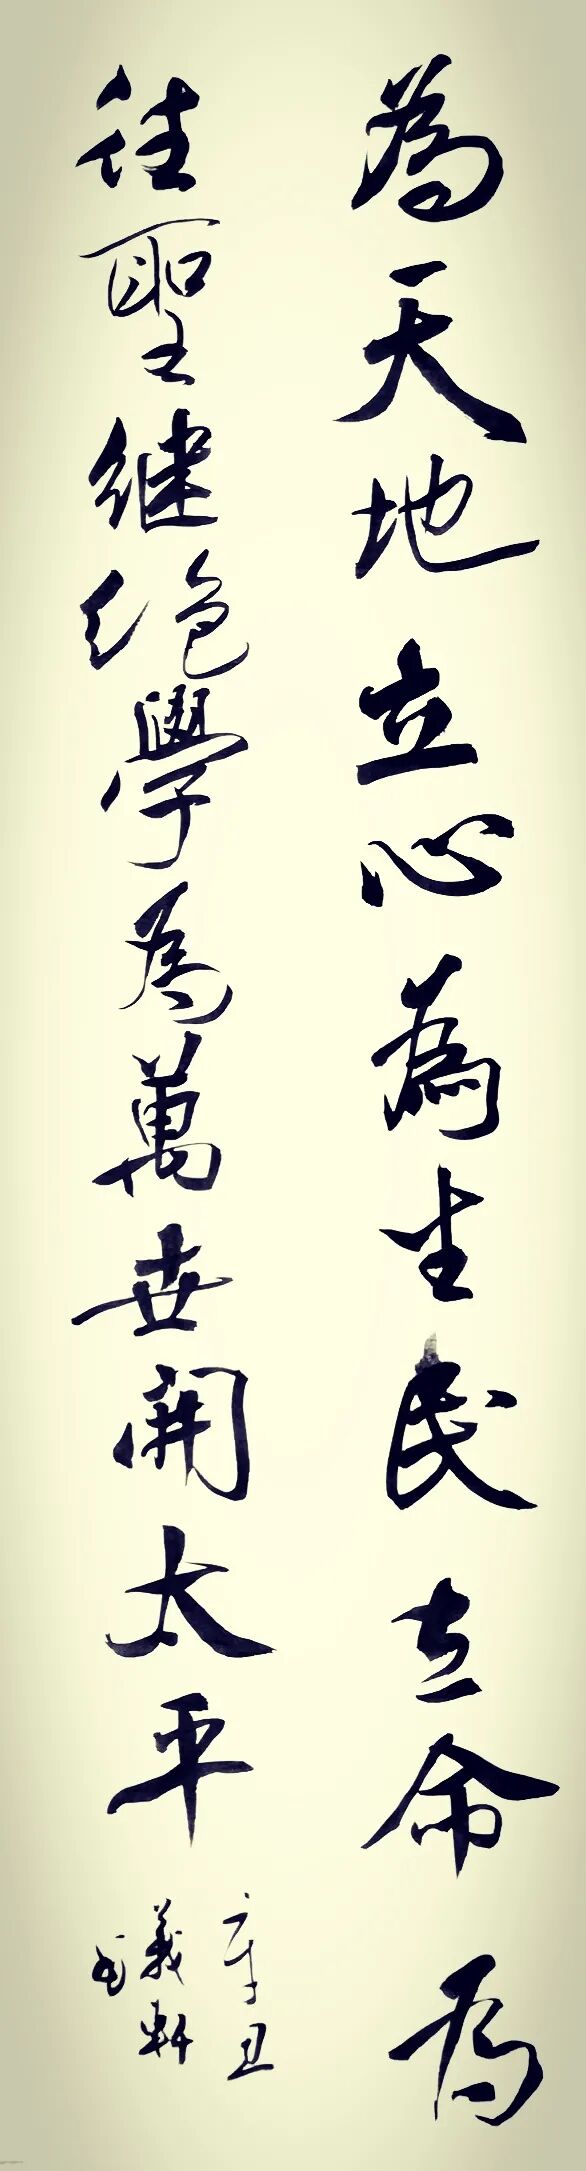 為天地立心為生民立命為
往聖继绝學為萬世開太平
辛丑
義軒书